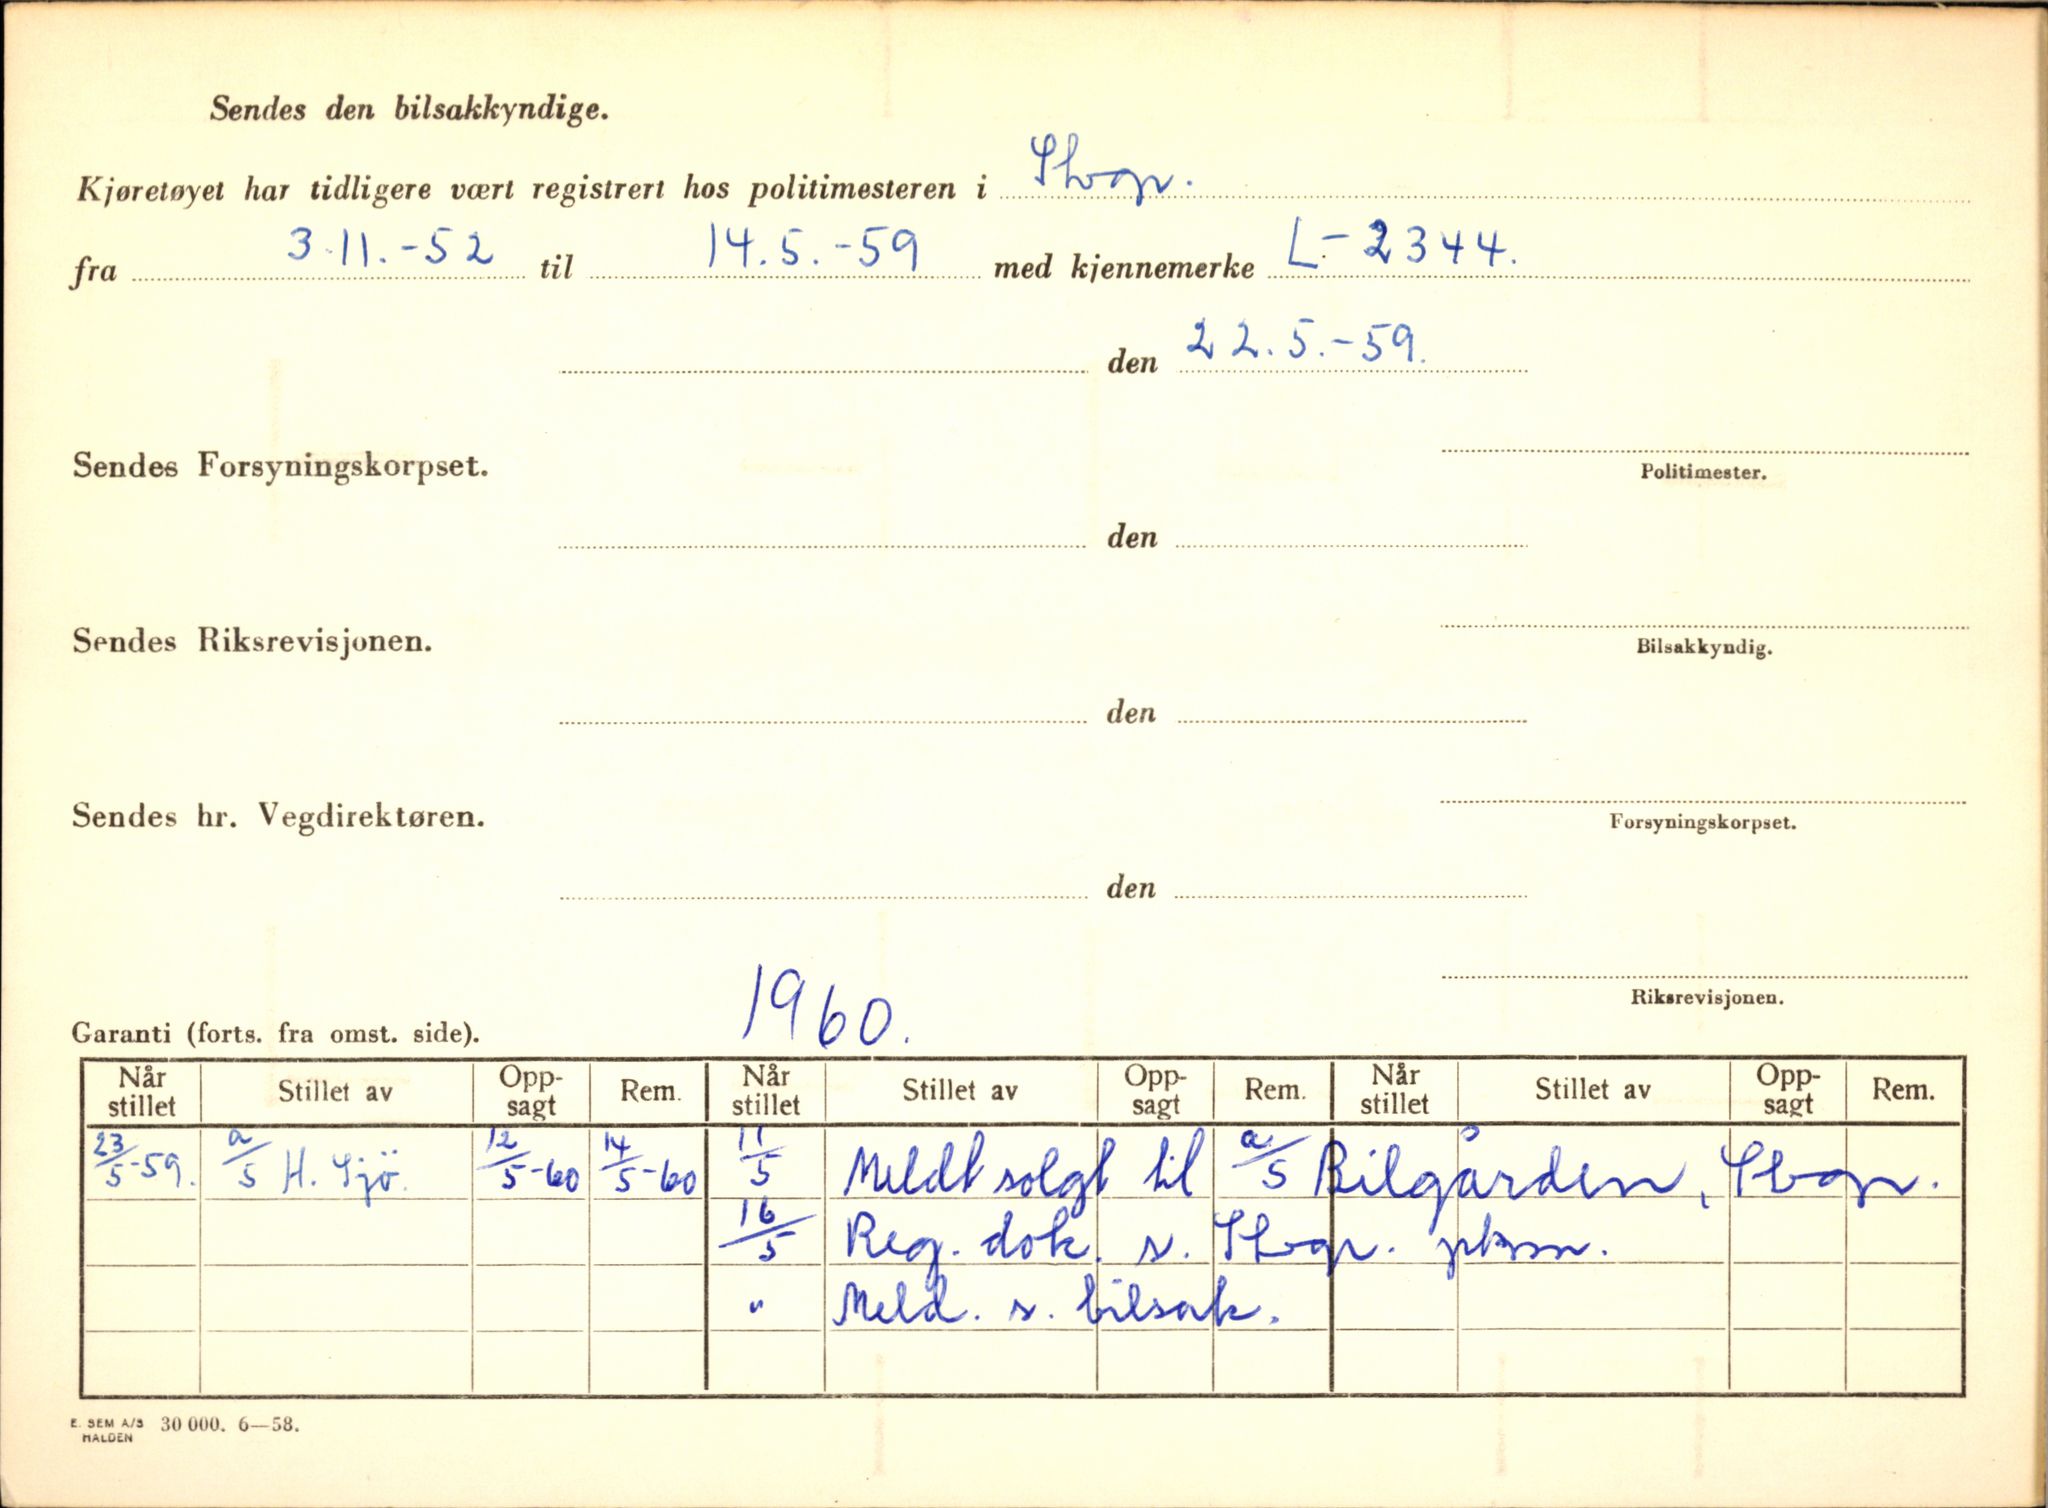 Sendes den bilsakkyndige.
Kjøretøyet har tidligere vært registrert hos politimesteren i Stvgr.
fra 3.11.-52 til 14.5.-59 med kjennemerke L.-2344.
den 22.5.-59.
Sendes Forsyningskorpset.
Politimester.
den
Sendes Riksrevisjonen.
Bilsakkyndig.
den
Sendes hr. Vegdirektøren.
Forsyningskorpset.
den
Riksrevisjonen.
Garanti (forts. fra omst. side). 1960.
Når stillet Stillet av Opp-sagt Rem. Når stillet Stillet av Opp-sagt Rem. Når stillet Stillet av Opp-sagt Rem.
23/5-59. a/s H. Sjö. 12/5-60 14/5-60 11/5 Meldt solgt til a/s Bilgården, Stvgr.
16/5 Reg. dok. s. Stvgr. pkm.
" Meld. s. bilsak.
E. SEM A/S HALDEN 30 000. 6—58.